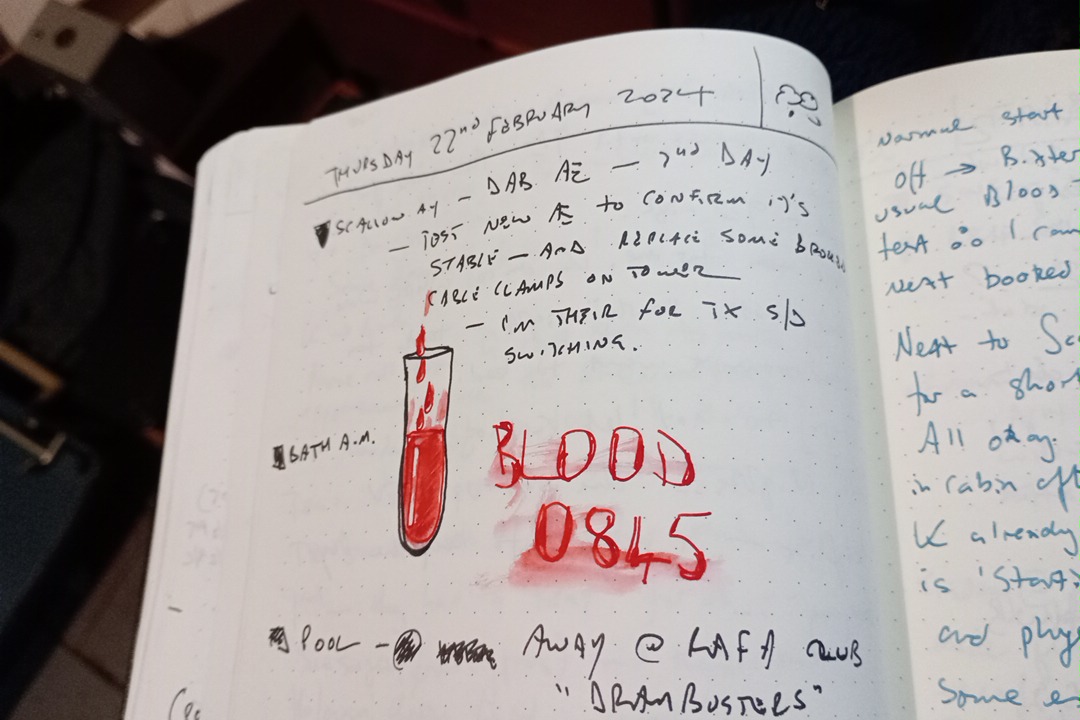 THURSDAY 22nd FEBRUARY 2024
SCALLOWAY - DAB AE - 2nd DAY
- TEST NEW AE to CONFIRM it's
STABLE - AND REPLACE SOME BROKEN
CABLE CLAMPS ON TOWER
- I'M THEIR FOR TX S/D
SWITCHING.
BATH A.M.
BLOOD
0845
POOL - AWAY @ RAFA CLUB
"DRAMBUSTERS"
Normal start
off → Bixter
usual Blood
test 
Next booked
Next to Sca
for a short
All okay.
in cabin aft
K already
is 'Start
and phys
Some en